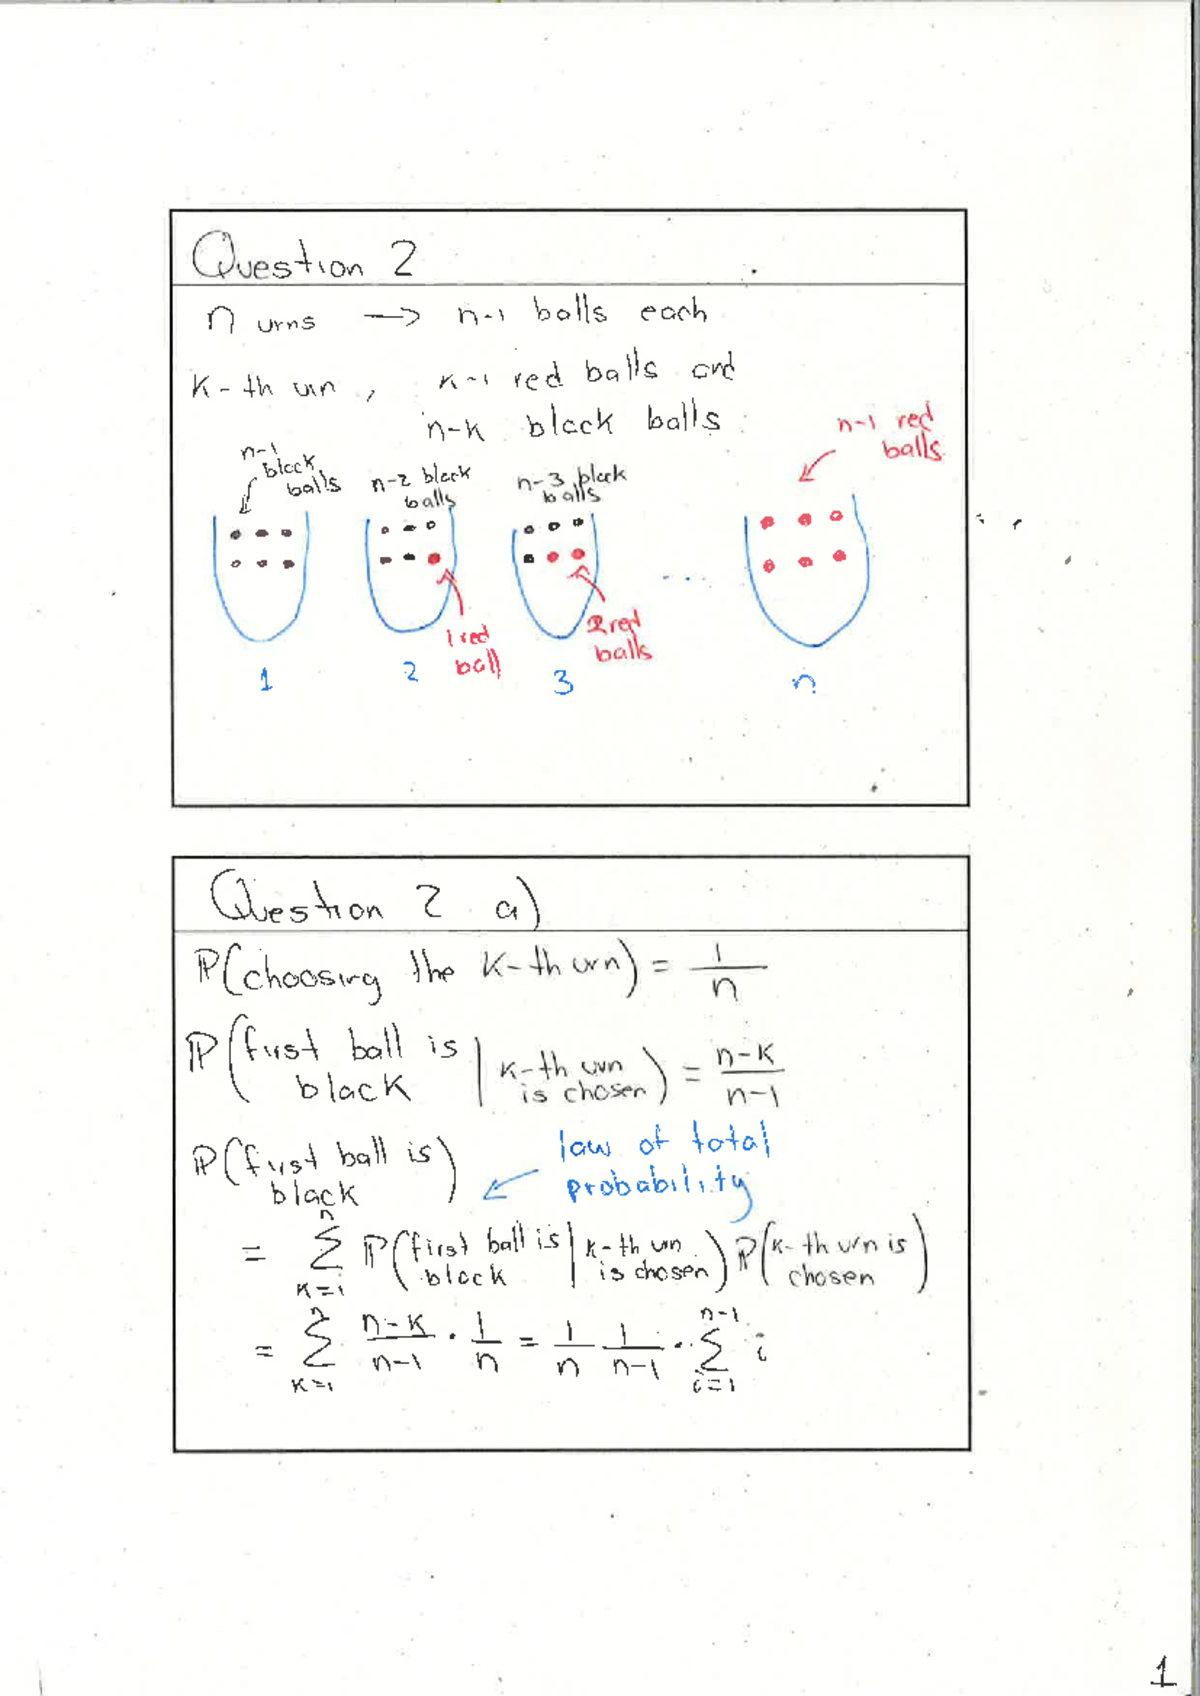 Question 2
n urns → n-1 balls each
K-th urn, k-1 red balls and
n-k black balls
n-1 red
balls
n-1
black
balls
n-2 black
balls
n-3 black
balls
....
1 red
ball
2 red
balls
1 2 3 n
Question 2 a)
ℙ(choosing the k-th urn) = 1/n
ℙ(first ball is black | k-th urn is chosen) = (n-k)/(n-1)
ℙ(first ball is black)
law of total
probability
= Σ_{k=1}^{n} ℙ(first ball is black | k-th urn is chosen) ℙ(k-th urn is chosen)
= Σ_{k=1}^{n} (n-k)/(n-1) · 1/n = 1/n 1/(n-1) · Σ_{i=1}^{n-1} i
1